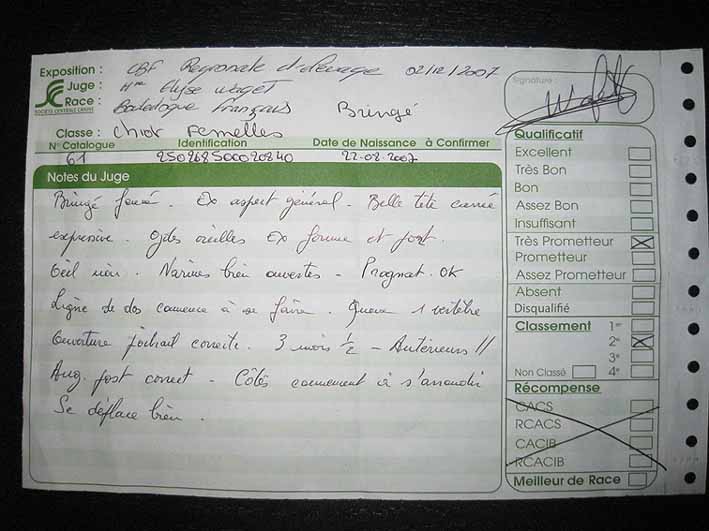 Exposition : CBF Regionale d'élevage 02/12/2007
Juge : Mme Elyse Waget
SOCIÉTÉ CENTRALE CANINE
Race : Bouledogue Français Bringé
Classe : Chiot Femelles
N° Catalogue Identification Date de Naissance à Confirmer
61 250268500020840 22-08-2007
Notes du Juge
Bringé foncé. Ex aspect général. Belle tête carrée
expressive. Gdes oreilles Ex forme et post.
Oeil noir. Narines bien ouvertes - Prognat. OK
Ligne de dos commence à se faire. Queue 1 vertèbre
Ouverture poitrail correcte. 3 mois 1/2 - Antérieurs //
Ang. post correct - Côtes commencent à s'arrondir
Se déplace bien.
Signature :
Qualificatif
Excellent
Très Bon
Bon
Assez Bon
Insuffisant
Très Prometteur
Prometteur
Assez Prometteur
Absent
Disqualifié
Classement 1er
2e
3e
Non Classé 4e
Récompense
CACS
RCACS
CACIB
RCACIB
Meilleur de Race